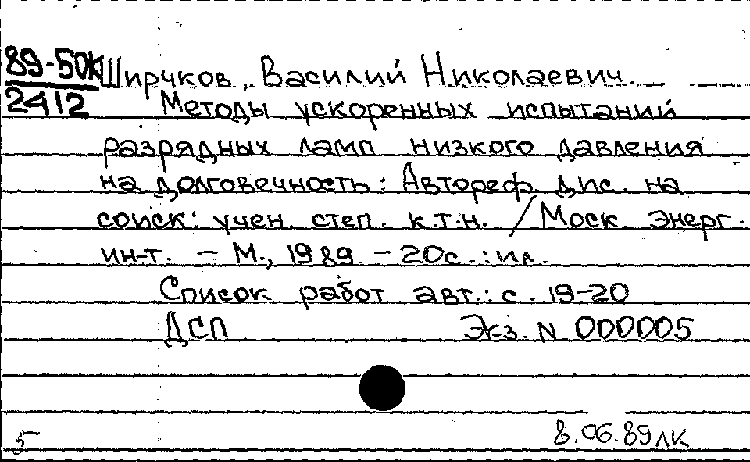 89-50К Ширчков, Василий Николаевич.
2412 Методы ускоренных испытаний
разрядных ламп низкого давления
на долговечность: Автореф. дис. на
соиск. учен. степ. к.т.н. / Моск. энерг.
ин-т. – М., 1989. – 20с.: ил.
Список работ авт.: с. 19-20
ДСП Экз. N 000005
5 8.06.89 лк